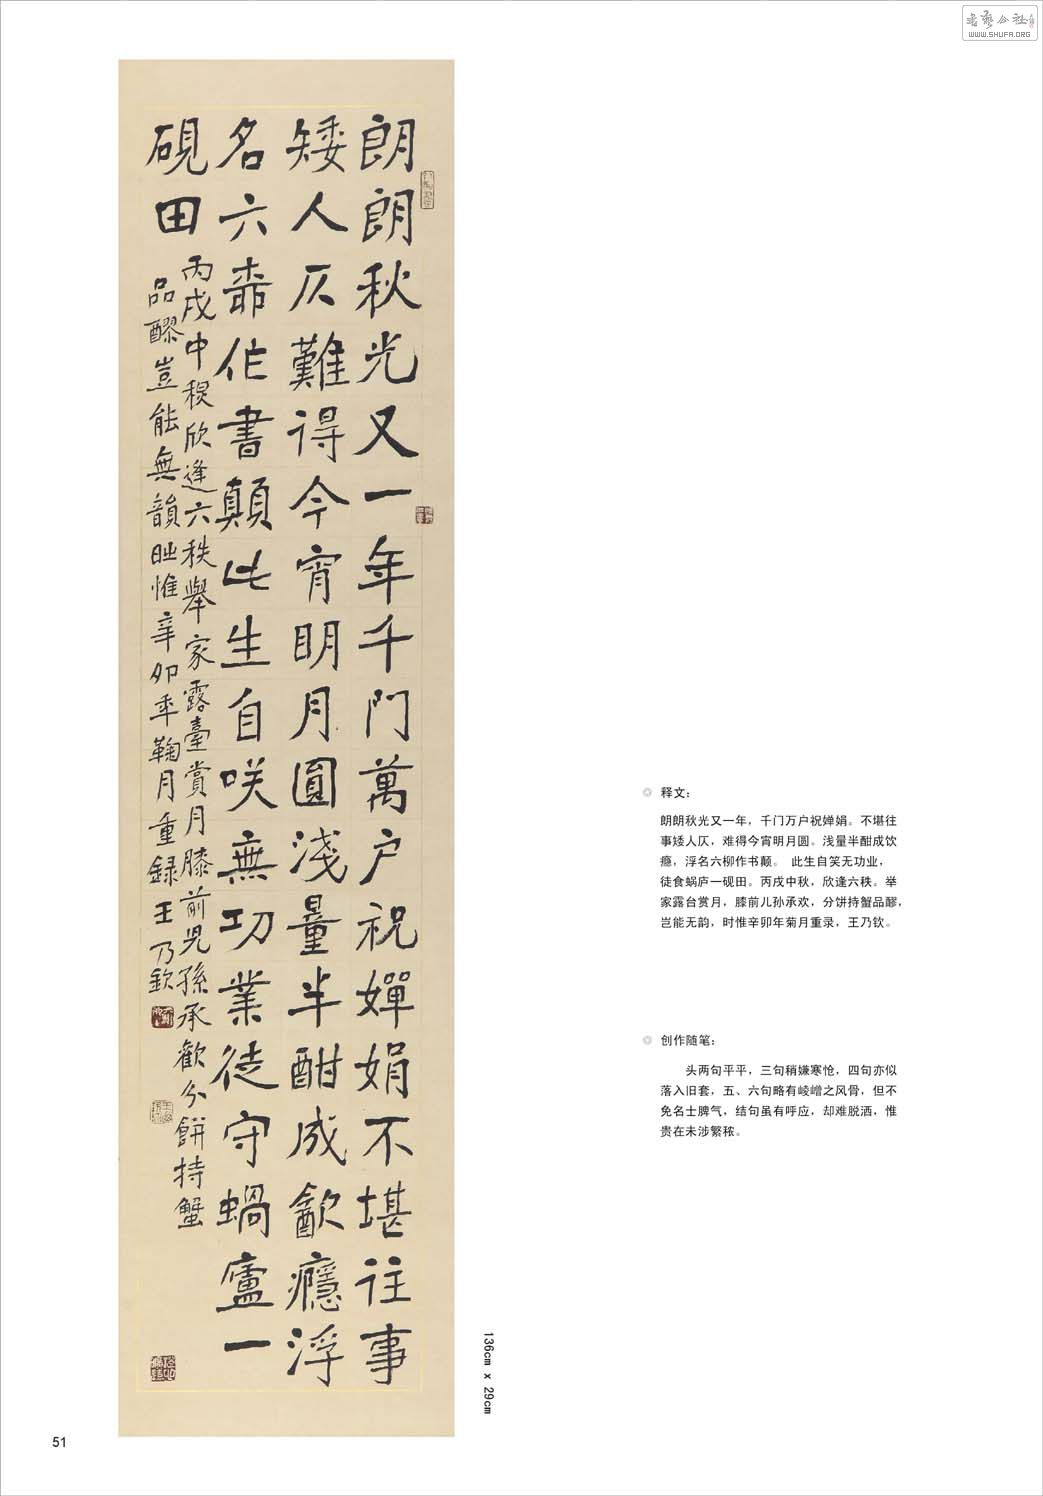 书艺公社
WWW.SHUFA.ORG
朗朗秋光又一年千門萬户祝嬋娟不堪往事
矮人仄難得今宵明月圓淺量半酣成飲癮浮
名六作書顛此生自咲無功業徒守蝸廬一
硯田
丙戌中秋欣逢六秩舉家露臺賞月膝前児孫承歡分餅持蟹
品醪豈能無韻時惟辛卯年鞠月重録王乃欽
136cm x 29cm
释文：
朗朗秋光又一年，千门万户祝婵娟。不堪往
事矮人仄，难得今宵明月圆。浅量半酣成饮
瘾，浮名六柳作书颠。 此生自笑无功业，
徒食蜗庐一砚田。丙戌中秋，欣逢六秩。举
家露台赏月，膝前儿孙承欢，分饼持蟹品醪，
岂能无韵，时惟辛卯年菊月重录，王乃钦。
创作随笔：
头两句平平，三句稍嫌寒怆，四句亦似
落入旧套，五、六句略有崚嶒之风骨，但不
免名士脾气，结句虽有呼应，却难脱洒，惟
贵在未涉繁秾。
51